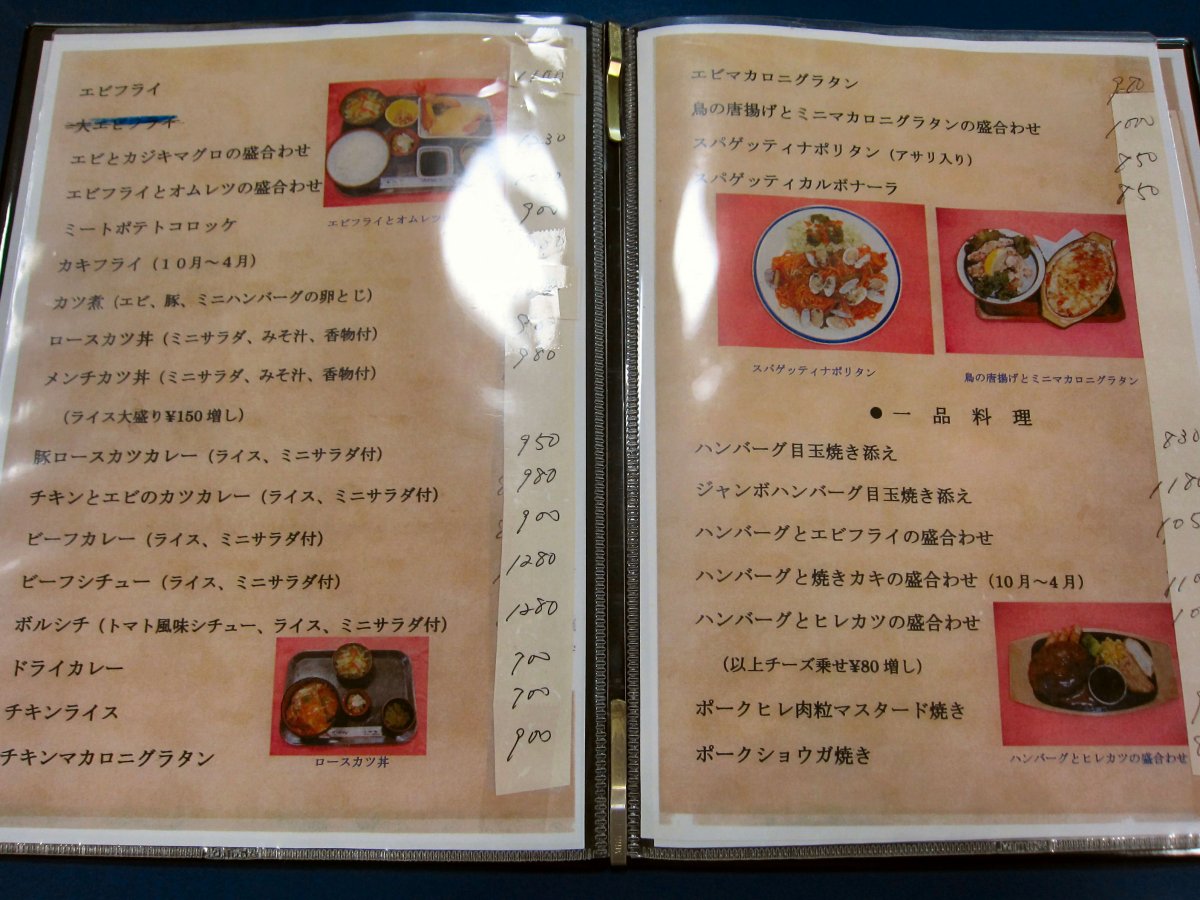 エビフライ
大エビフライ
エビとカジキマグロの盛合わせ
エビフライとオムレツの盛合わせ
ミートポテトコロッケ 900
エビフライとオムレツ
カキフライ（１０月～４月）
カツ煮（エビ、豚、ミニハンバーグの卵とじ）
ロースカツ丼（ミニサラダ、みそ汁、香物付）
メンチカツ丼（ミニサラダ、みそ汁、香物付） 980
（ライス大盛り¥150 増し）
豚ロースカツカレー（ライス、ミニサラダ付） 950
チキンとエビのカツカレー（ライス、ミニサラダ付） 980
ビーフカレー（ライス、ミニサラダ付） 900
ビーフシチュー（ライス、ミニサラダ付） 1280
ボルシチ（トマト風味シチュー、ライス、ミニサラダ付） 1280
ドライカレー 700
チキンライス 700
チキンマカロニグラタン 900
ロースカツ丼
エビマカロニグラタン
鳥の唐揚げとミニマカロニグラタンの盛合わせ 1000
スパゲッティナポリタン（アサリ入り） 850
スパゲッティカルボナーラ 850
スパゲッティナポリタン
鳥の唐揚げとミニマカロニグラタン
●一品料理
ハンバーグ目玉焼き添え 830
ジャンボハンバーグ目玉焼き添え 1180
ハンバーグとエビフライの盛合わせ
ハンバーグと焼きカキの盛合わせ（10月～４月）
ハンバーグとヒレカツの盛合わせ
（以上チーズ乗せ¥80 増し）
ポークヒレ肉粒マスタード焼き
ポークショウガ焼き
ハンバーグとヒレカツの盛合わせ